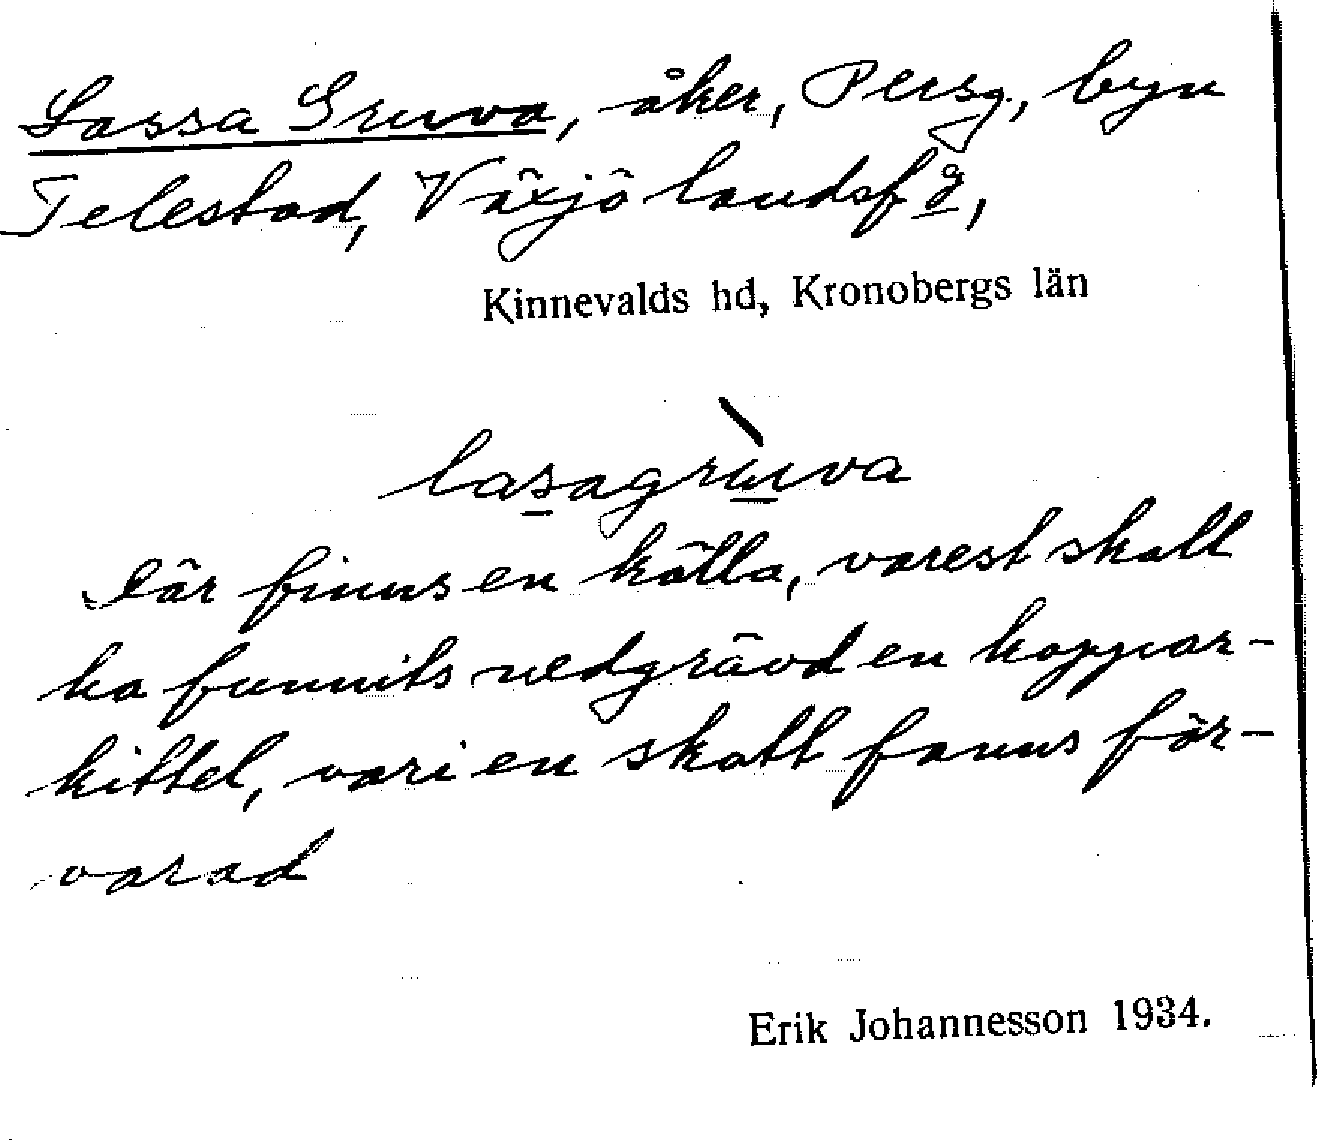 Lassa Gruva, åker, Persg, byn
Telestad, Växjö landsfg,
Kinnevalds hd, Kronobergs län
lasagrùva
Där finns en källa, varest skall
ha funnits nedgrävd en koppar-
kittel, vari en skatt fanns för-
varad
Erik Johannesson 1934.